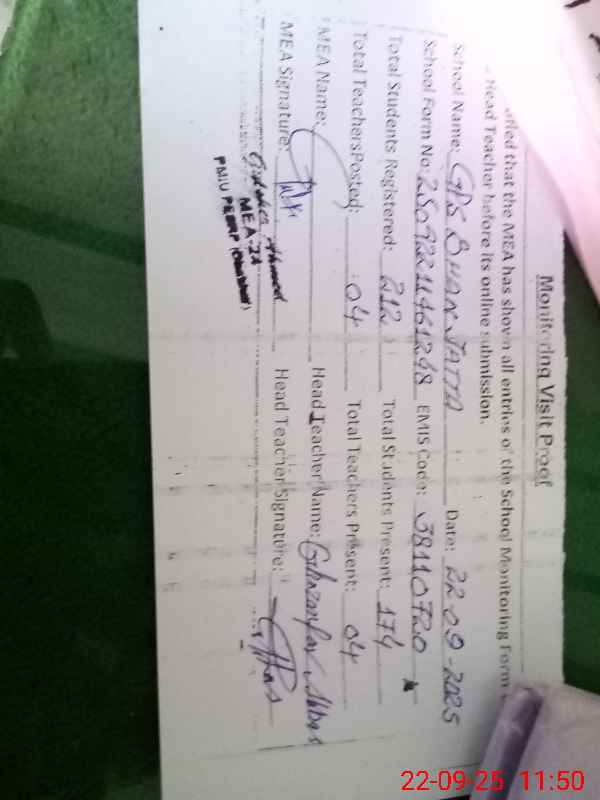 Monitoring Visit Proof
that the MEA has shown all entries of the School Monitoring Form
Head Teacher before its online submission.
School Name: GPS BHAN JATTA Date: 22-09-2025
School Form No: EMIS Code: 38110720
Total Students Registered: 212 Total Students Present: 174
Total TeachersPosted: 04 Total Teachers Present: 04
MEA Name: Head Teacher Name: Ghazanfar Abbas
MEA Signature: Head Teacher Signature:
Ahmed
MEA-
PMIU PESRP
22-09-25 11:50